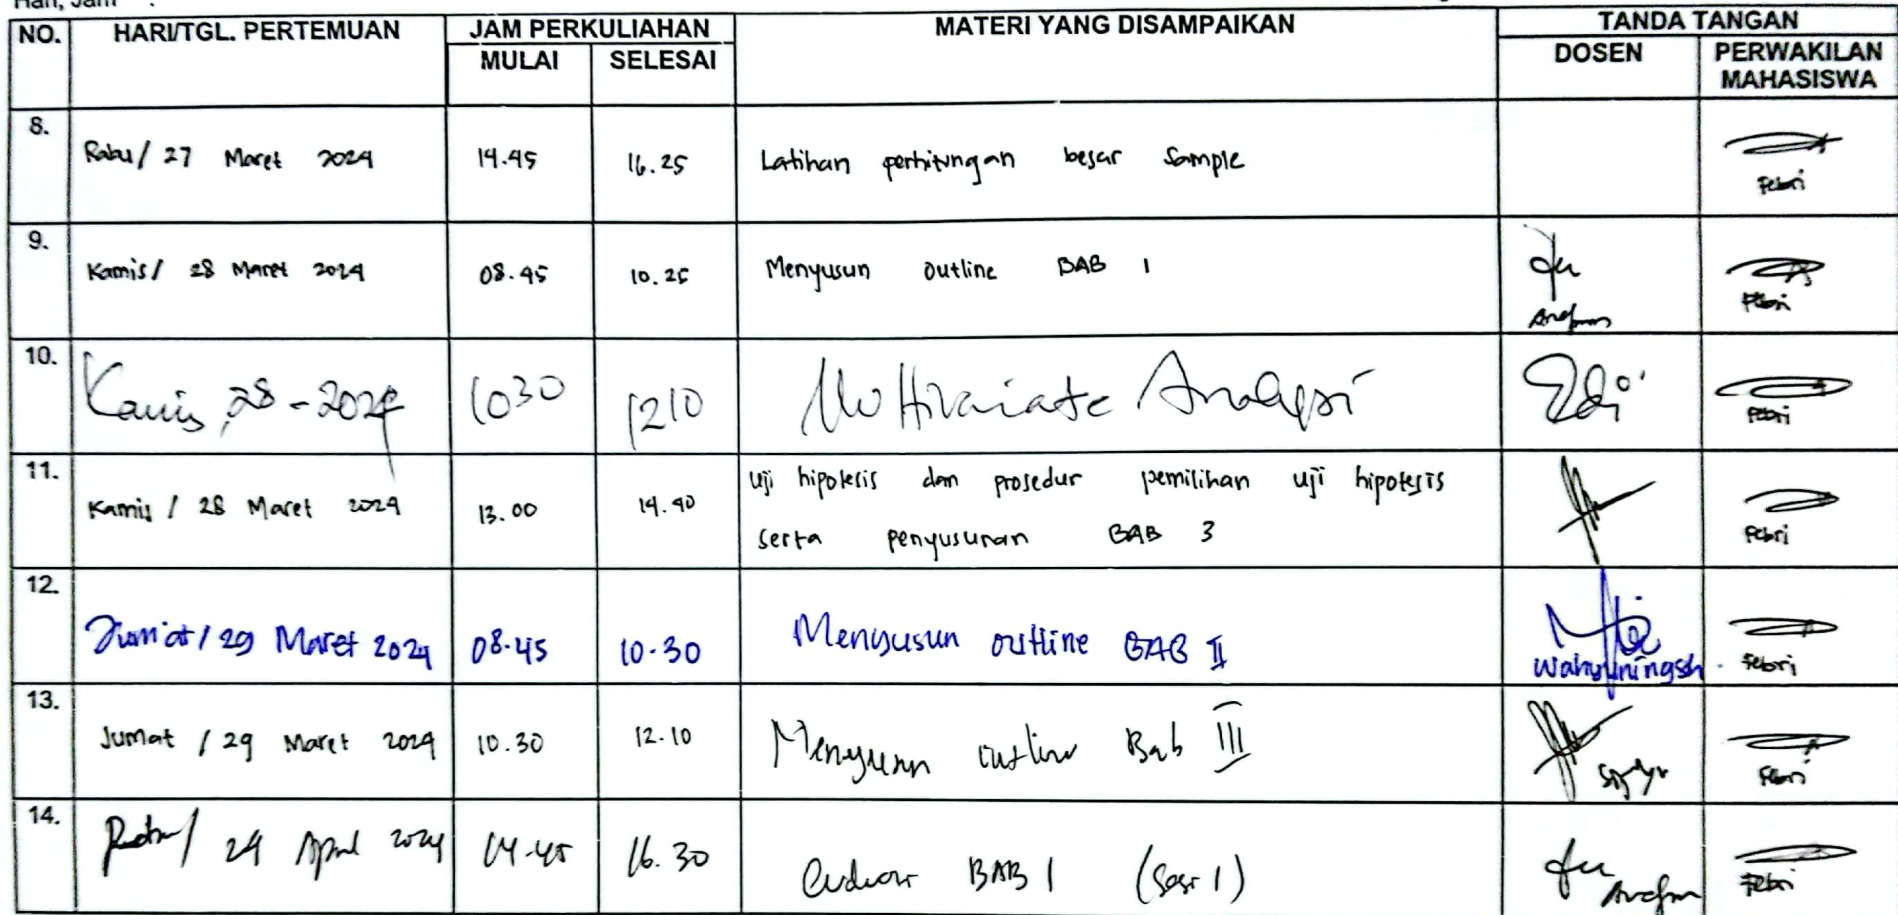 Hari, Jam :
NO. HARI/TGL. PERTEMUAN JAM PERKULIAHAN MATERI YANG DISAMPAIKAN TANDA TANGAN
MULAI SELESAI DOSEN PERWAKILAN MAHASISWA
8. Rabu / 27 Maret 2024 14.45 16.25 Latihan perhitungan besar sample Febri
9. Kamis / 28 Maret 2024 08.45 10.25 Menyusun outline BAB 1 Febri
10. Kamis, 28 - 2024 1030 1210 Multivariate Analysi Edi Febri
11. Kamis / 28 Maret 2024 13.00 14.40 Uji hipotesis dan prosedur pemilihan uji hipotesis
serta penyusunan BAB 3 Febri
12. Jumat / 29 Maret 2024 08.45 10.30 Menyusun outline BAB II Wahyuningsih Febri
13. Jumat / 29 Maret 2024 10.30 12.10 Menyusun outline Bab III Febri
14. Rabu / 24 April 2024 14.45 16.30 BAB 1 (Sesi 1) Febri